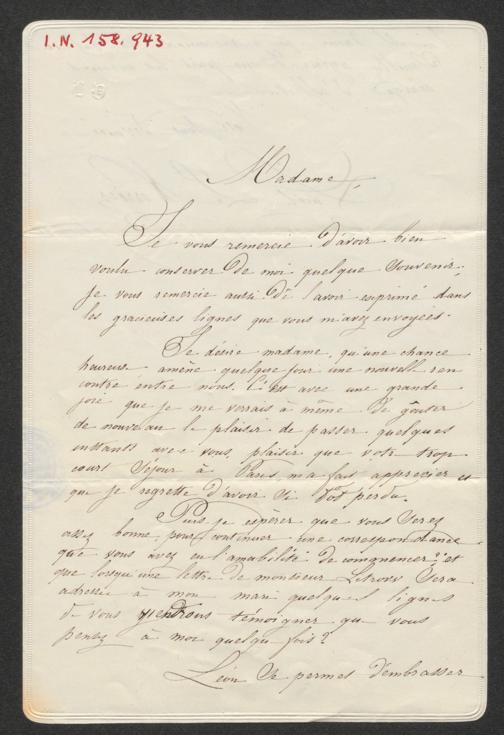 I.N. 158.943
Madame,
Je vous remercie d'avoir bien
voulu conserver de moi quelque souvenir;
je vous remercie aussi de l'avoir exprimé dans
les gracieuses lignes que vous m'avez envoyées.
Je désire madame, qu'une chance
heureuse amène quelque jour une nouvelle ren
contre entre nous. C'est avec une grande
joie que je me verrais à même de goûter
de nouveau le plaisir de passer quelques
instants avec vous, plaisir que votre trop
court séjour à Paris, m'a fait apprécier et
que je regrette d'avoir si tôt perdu.
Puis je espérer que vous serez
assez bonne, pour continuer une correspondance
que vous avez eu l'amabilité de commencer; et
que lorsqu'une lettre de monsieur Litrow sera
adressée à mon mari quelques lignes
de vous viendrons témoigner que vous
pensez à moi quelque fois?
Léon se permes d'embrasser